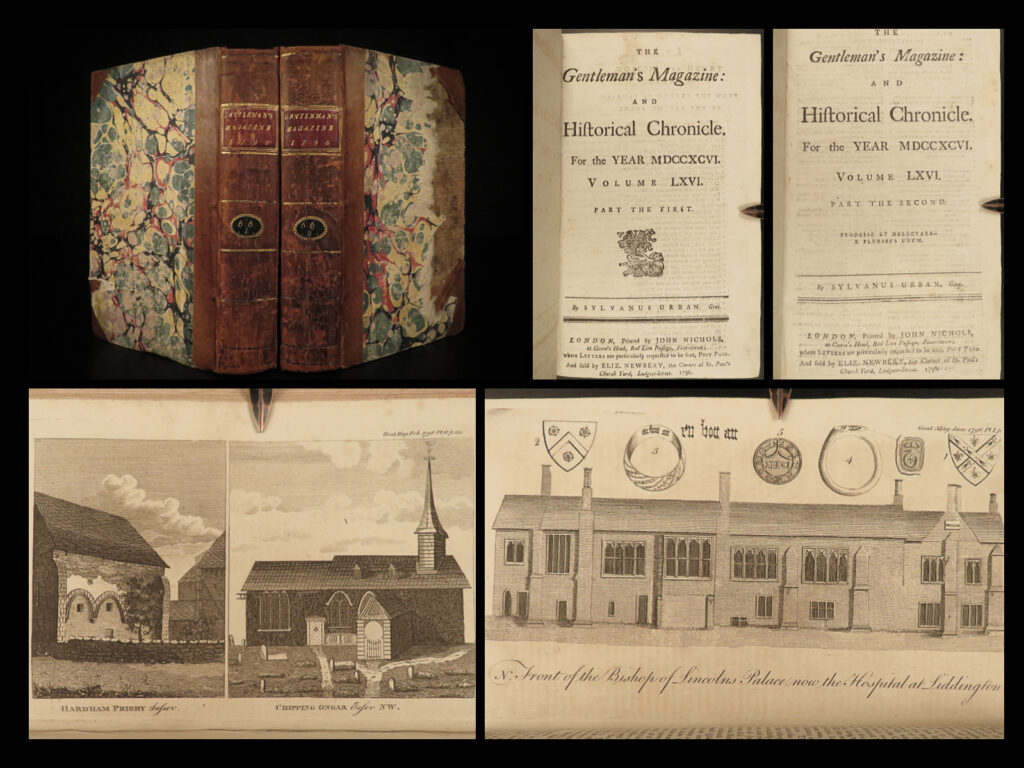 GENTLEMAN'S
MAGAZINE
1796
66
1
GENTLEMAN'S
MAGAZINE
1796
66
2
THE
Gentleman's Magazine:
AND
Hiſtorical Chronicle.
For the YEAR MDCCXCVI.
VOLUME LXVI.
PART THE FIRST.
By SYLVANUS URBAN, Gent.
LONDON, Printed by JOHN NICHOLS,
at Cicero's Head, Red Lion Paſſage, Fleet-ſtreet;
where LETTERS are particularly requeſted to be ſent, POST PAID.
And ſold by ELIZ. NEWBERY, the Corner of St. Paul's
Church Yard, Ludgate-Street. 1796.
THE
Gentleman's Magazine:
AND
Hiſtorical Chronicle.
For the YEAR MDCCXCVI.
VOLUME LXVI.
PART THE SECOND.
PRODESSE ET DELECTARE
E PLURIBUS UNUM.
By SYLVANUS URBAN, Gent.
LONDON, Printed by JOHN NICHOLS,
at Cicero's Head, Red Lion Paſſage, Fleet-ſtreet;
where LETTERS are particularly requeſted to be ſent, POST PAID.
And ſold by ELIZ. NEWBERY, the Corner of St. Paul's
Church Yard, Ludgate-Street. 1796.
Gent. Mag. Feb. 1796. Pl. II. p.
HARDHAM PRIORY Suſsex.
CHIPPING ONGAR Eſsex NW.
Gent. Mag. Jan. 1796. Pl. I. p.
2
3
en bon an
5
4
1
N. Front of the Bishop of Lincolns Palace, now the Hospital at Liddington